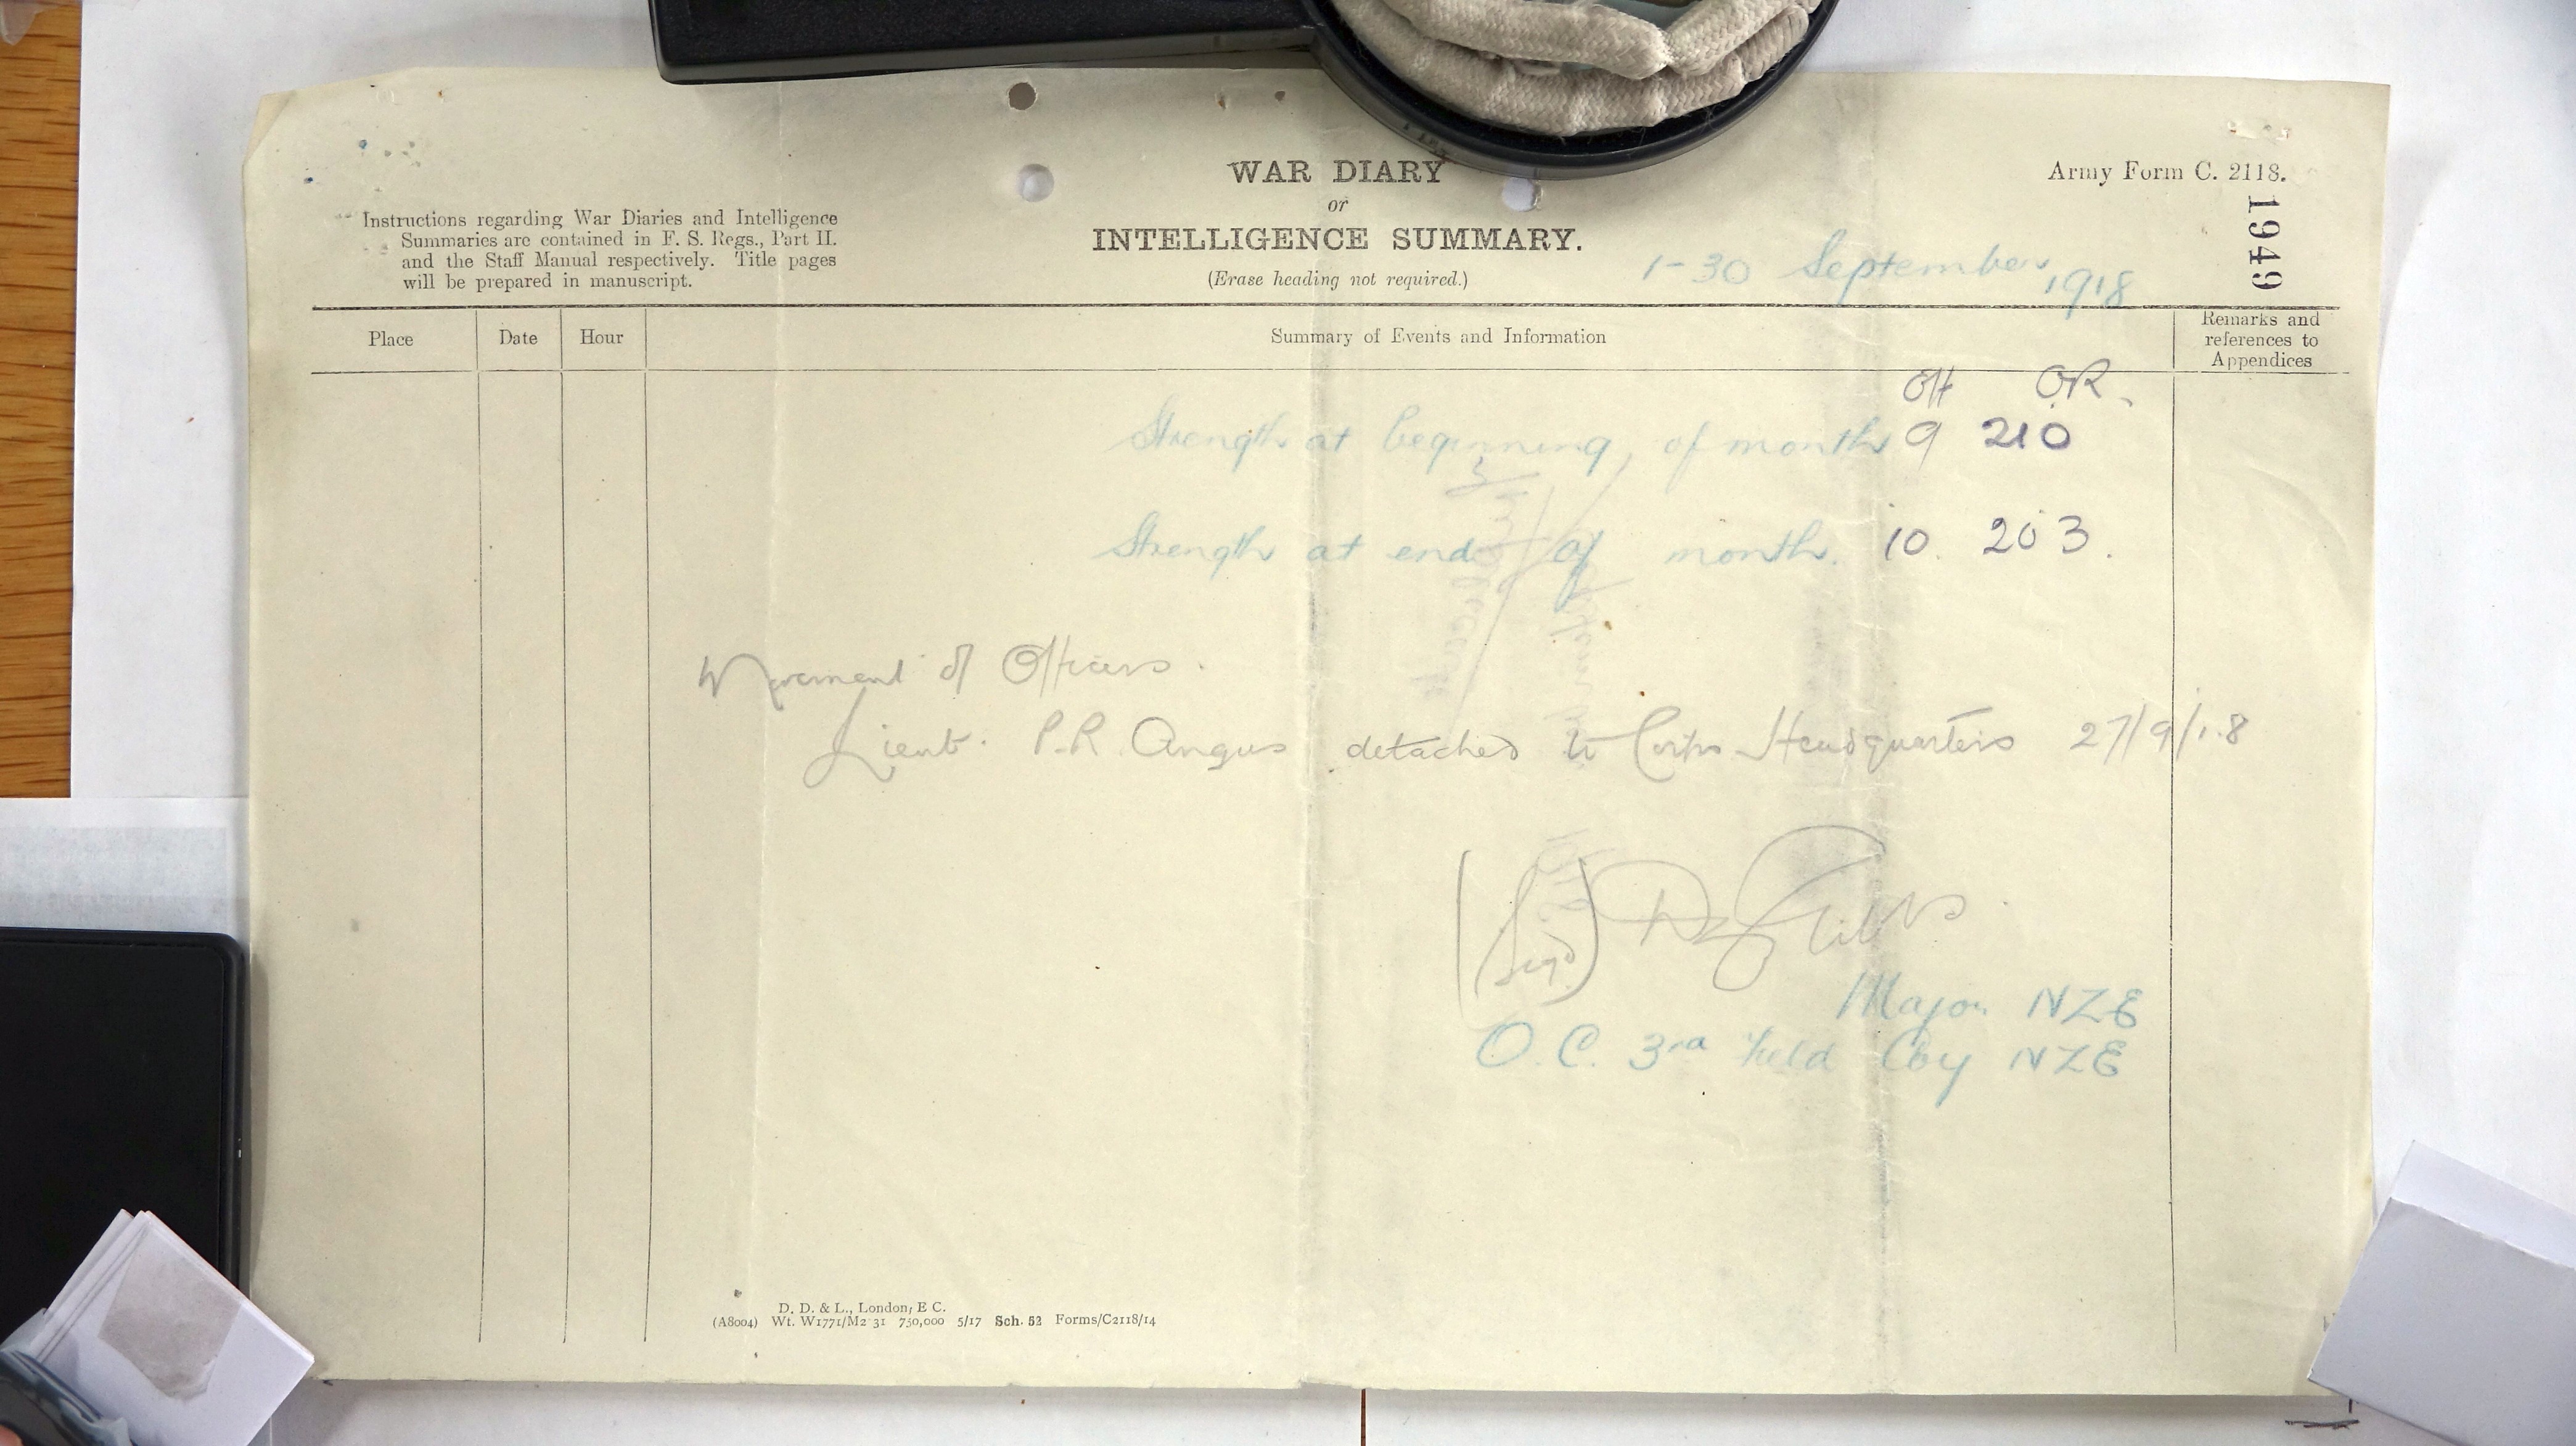 WAR DIARY
or
INTELLIGENCE SUMMARY.
(Erase heading not required.)
Army Form C. 2118.
1949
Instructions regarding War Diaries and Intelligence
Summaries are contained in F. S. Regs., Part II.
and the Staff Manual respectively. Title pages
will be prepared in manuscript.
1-30 September 1918
Place Date Hour Summary of Events and Information Remarks and
references to
Appendices
Off OR.
Strength at beginning of month 9 210
Strength at end of month. 10. 203.
Movement of Officers.
Lieut. P.R. Angus detached to Corps Headquarters 27/9/18
(Sigd)
Major NZE
O.C. 3rd Field Coy NZE
D. D. & L., London, E C.
(A8004) Wt. W1771/M2 31 750,000 5/17 Sch. 52 Forms/C2118/14